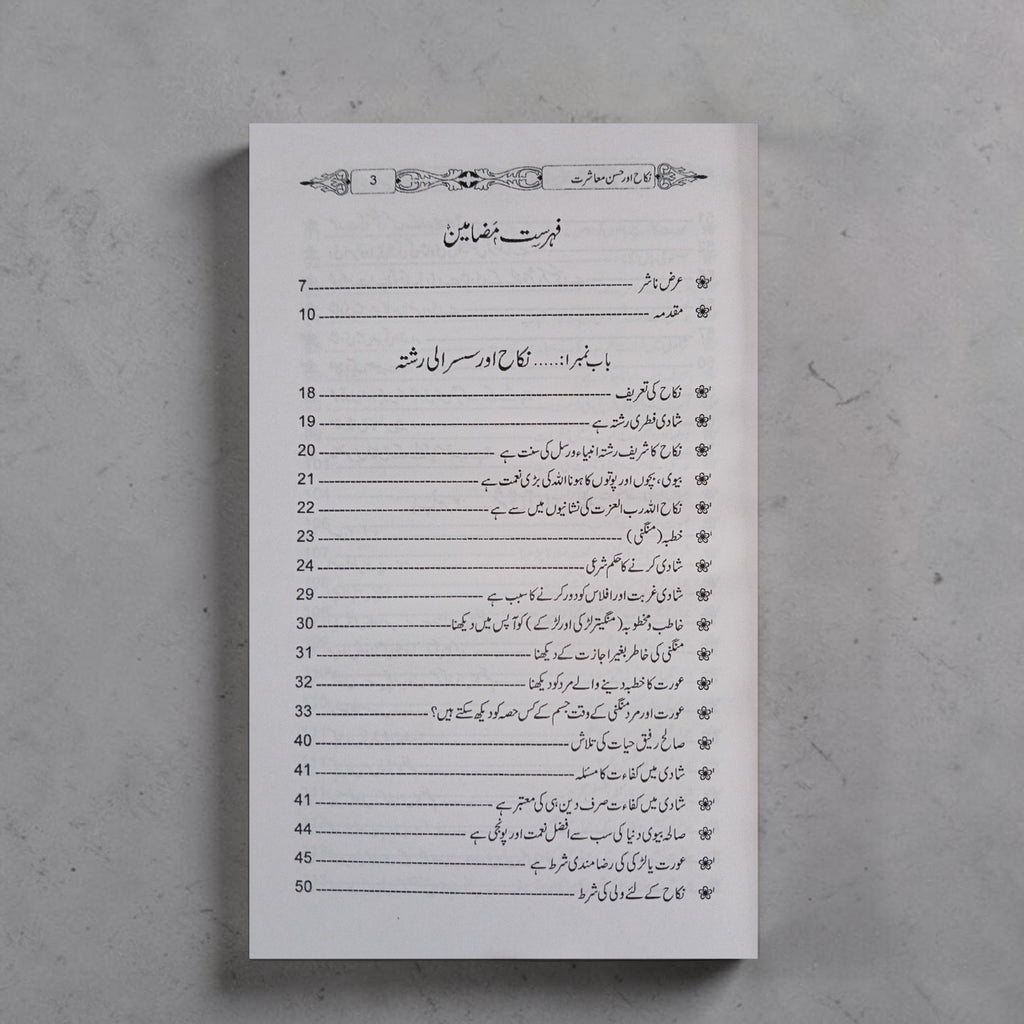 نکاح اور حسن معاشرت 3
فہرست مضامین
عرض ناشر 7
مقدمہ 10
باب نمبر۱:..... نکاح اور سسرالی رشتہ
نکاح کی تعریف 18
شادی فطری رشتہ ہے 19
نکاح کا شریف رشتہ انبیاء ورسل کی سنت ہے 20
بیوی، بچوں اور پوتوں کا ہونا اللہ کی بڑی نعمت ہے 21
نکاح اللہ رب العزت کی نشانیوں میں سے ہے 22
خطبہ (منگنی) 23
شادی کرنے کا حکم شرعی 24
شادی غربت اور افلاس کو دور کرنے کا سبب ہے 29
خاطب ومخطوبہ (منگیتر لڑکی اور لڑکے) کو آپس میں دیکھنا 30
منگنی کی خاطر بغیر اجازت کے دیکھنا 31
عورت کا خطبہ دینے والے مرد کو دیکھنا 32
عورت اور مرد منگنی کے وقت جسم کے کس حصہ کو دیکھ سکتے ہیں؟ 33
صالح رفیق حیات کی تلاش 40
شادی میں کفاءت کا مسئلہ 41
شادی میں کفاءت صرف دین ہی کی معتبر ہے 41
صالحہ بیوی دنیا کی سب سے افضل نعمت اور پونجی ہے 44
عورت یا لڑکی کی رضا مندی شرط ہے 45
نکاح کے لئے ولی کی شرط 50